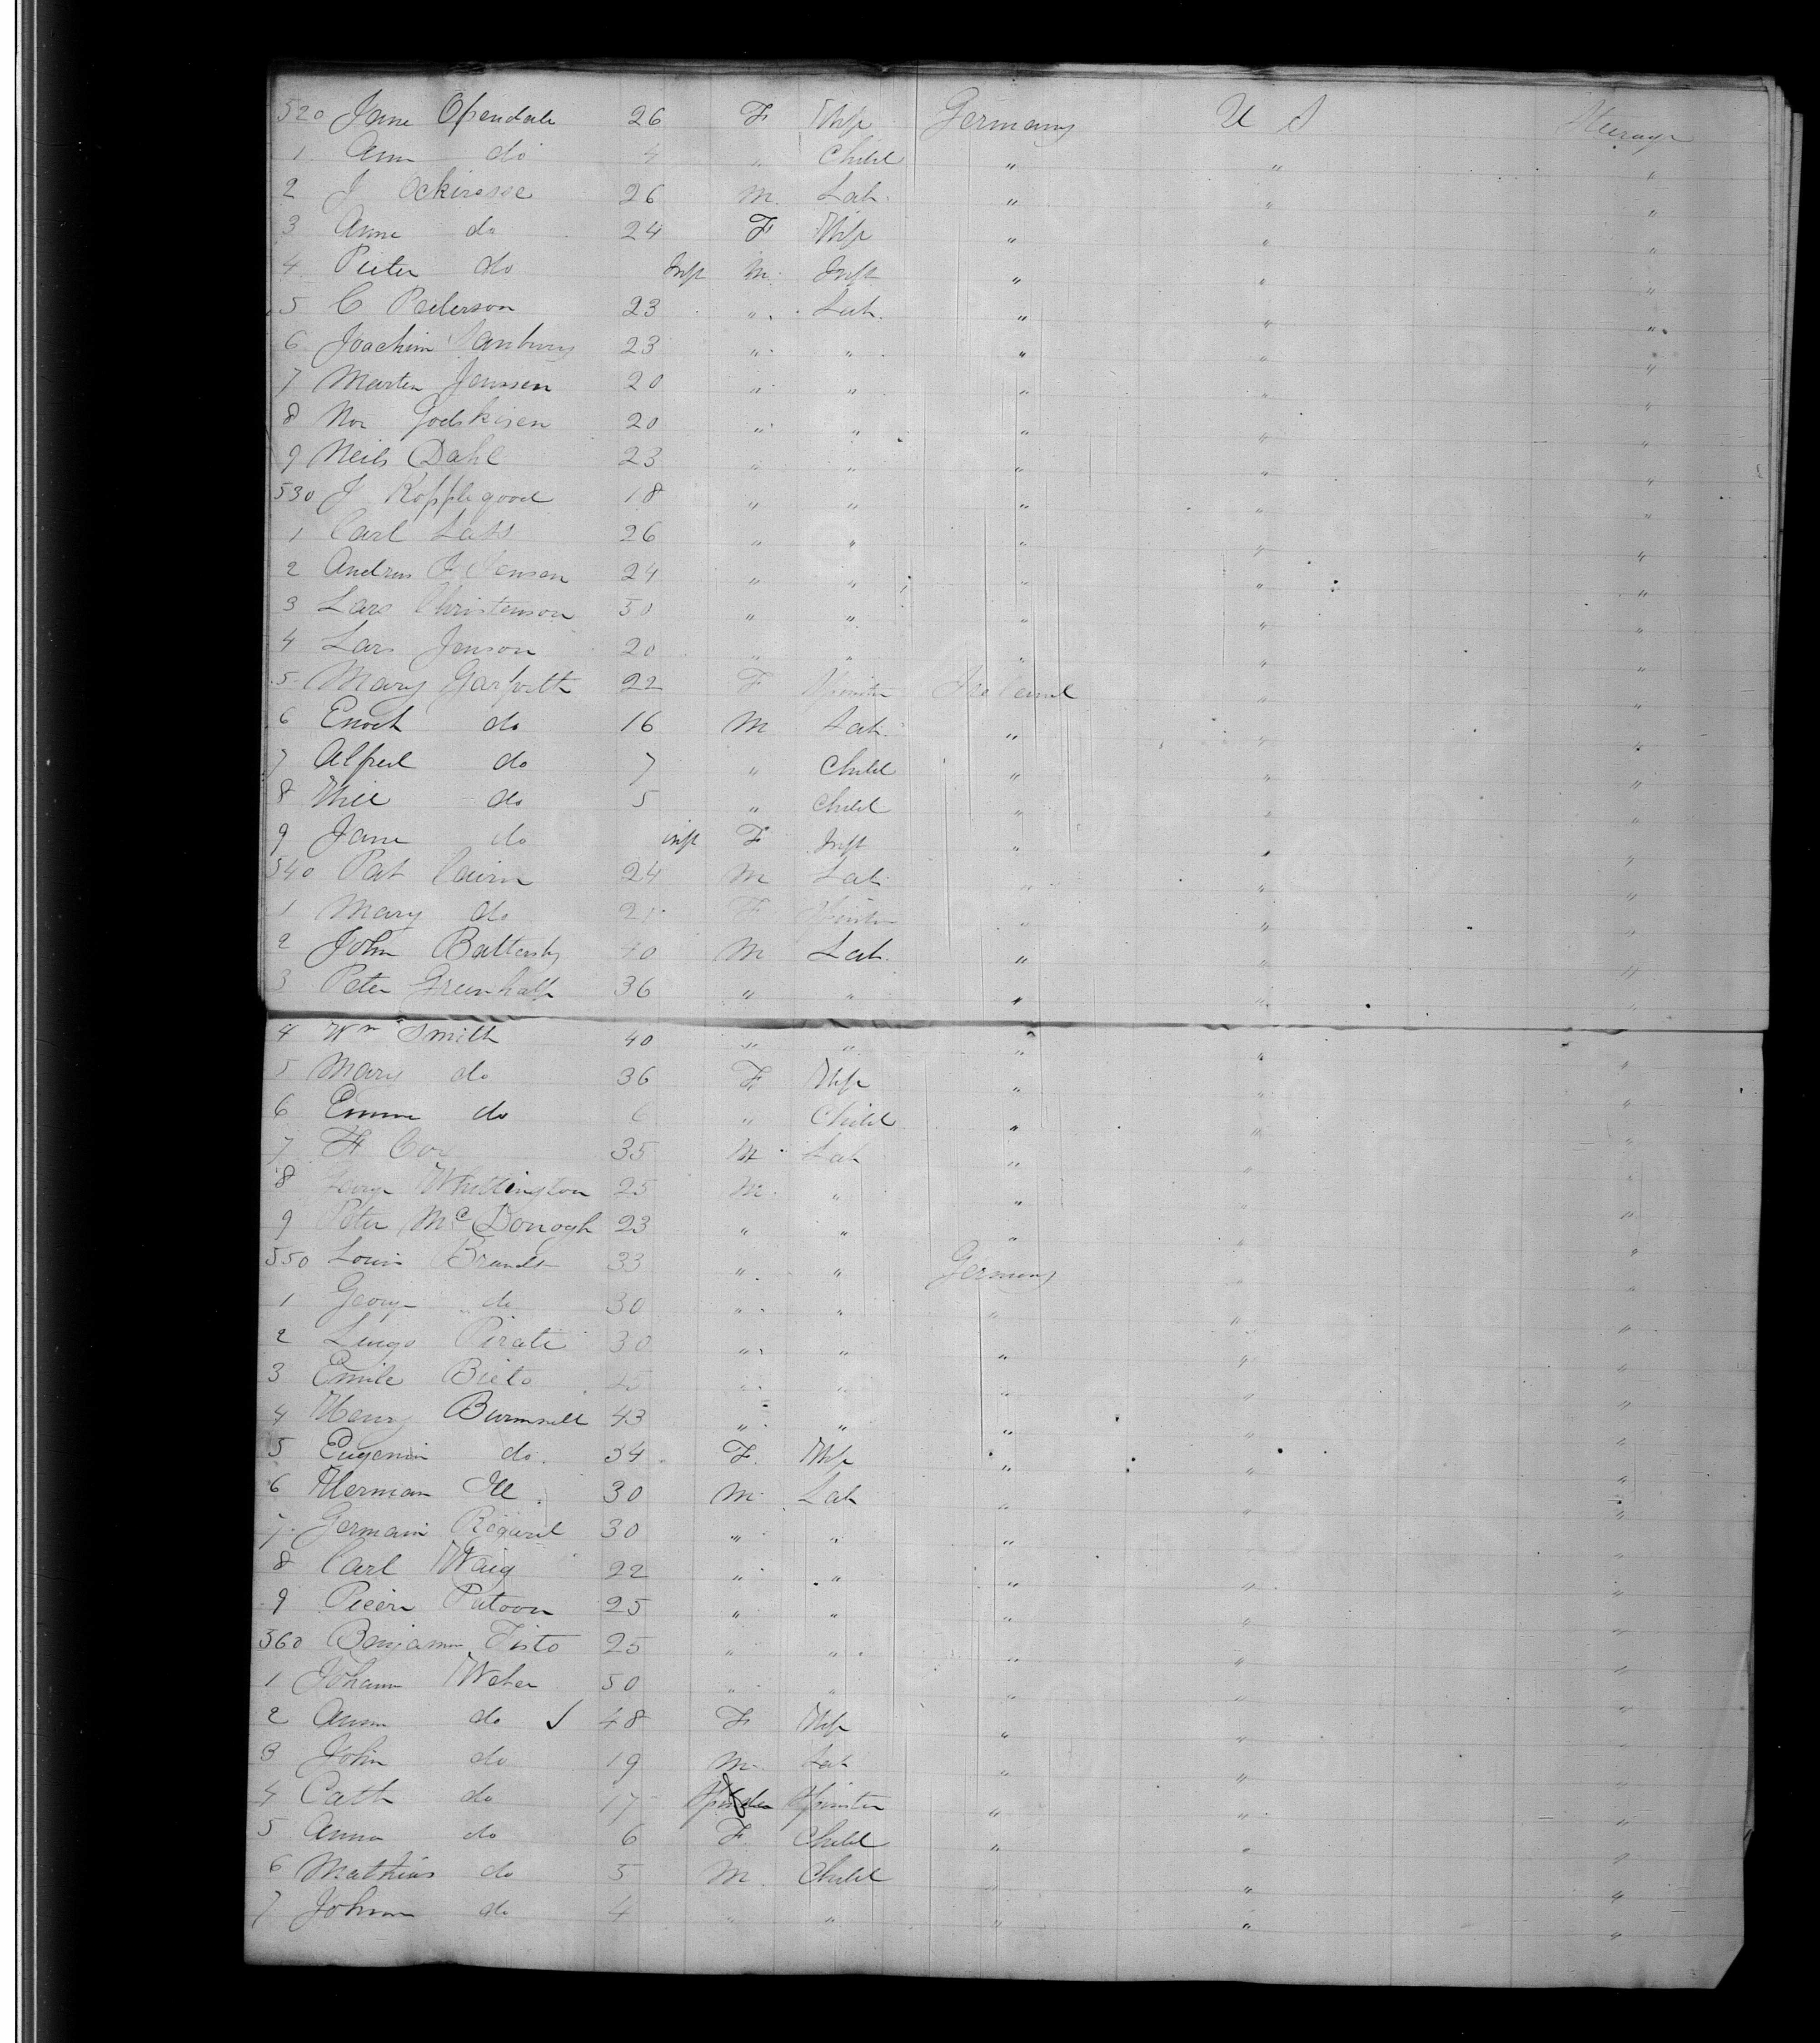 520 Jane Opendale 26 F Wife Germany U S Steerage
1 Ann do 4 " Child " " "
2 J Ockirosse 26 M. Lab. " " "
3 Anne do 24 F Wife " " "
4 Peter do Inft M. Inft " " "
5 C Pederson 23 " Lab. " " "
6 Joachim 23 " " " " "
7 Marten Janssen 20 " " " " "
8 Godskisen 20 " " " " "
9 Neils Dahl 23 " " " " "
530 J Kopplegood 18 " " " " "
1 Carl Lass 26 " " " " "
2 Andrus J Jensen 24 " " " " "
3 Lars Christenson 50 " " " " "
4 Lars Jenson 20 " " " " "
5 Mary Garforth 22 F Spinster Ireland " "
6 Enoch do 16 M Lab. " " "
7 Alfred do 7 " Child " " "
8 Will do 5 " Child " " "
9 Jane do inft F Inft " " "
540 Pat Cairn 24 M Lab. " " "
1 Mary do F Spinster " " "
2 John Battersby 40 M Lab. " " "
3 Peter Greenhalf 36 " " " " "
4 Wm Smith 40 " " " " "
5 Mary do 36 F. Wife " " "
6 Emma do 6 " Child " " "
7 H Cox 35 M Lab " " "
8 George Whittington 25 M. " " " "
9 Peter McDonogh 23 " " " " "
550 Louis Brandt 33 " " Germany " "
1 George do 30 " " " " "
2 Luigo Pirati 30 " " " " "
3 Emile Bieto " " " " "
4 Henry Burmnell 43 " " " " "
5 Eugenia do. 34 F. Wife " " "
6 Herman Ill 30 M. Lab " " "
7. Germain Regard 30 " " " " "
8 Carl Waig 22 " " " " "
9 Pieere Patoon 25 " " " " "
560 Benjamin Tisto 25 " " " " "
1 Johann Weber 50 " " " " "
2 Anna do ✓ 48 F Wife " " "
3 John do 19 M. Lab " " "
4 Cath do 17 Spinster " " "
5 Anna do 6 F. Child " " "
6 Mathias do 5 M. Child " " "
7 Johann do 4 " " " " "